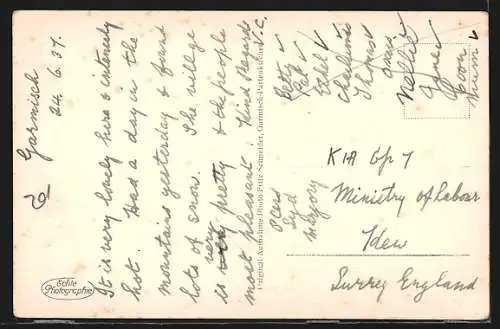 Garmisch
24. 6. 37.
It is very lovely here & intensely
hot. Had a day in the
mountains yesterday & found
lots of snow. The village
is very pretty & the people
most pleasant. Kind Regards
V.C.
Echte
Photographie
Original-Aufnahme Photo Fritz Schneider, Garmisch-Partenkirchen
Betty
Pat
Ethel
Charlie
Thomas
Nellie
Agnes
Syd
Marjory
KIA Gp 7
Ministry of Labour
Kew
Surrey England